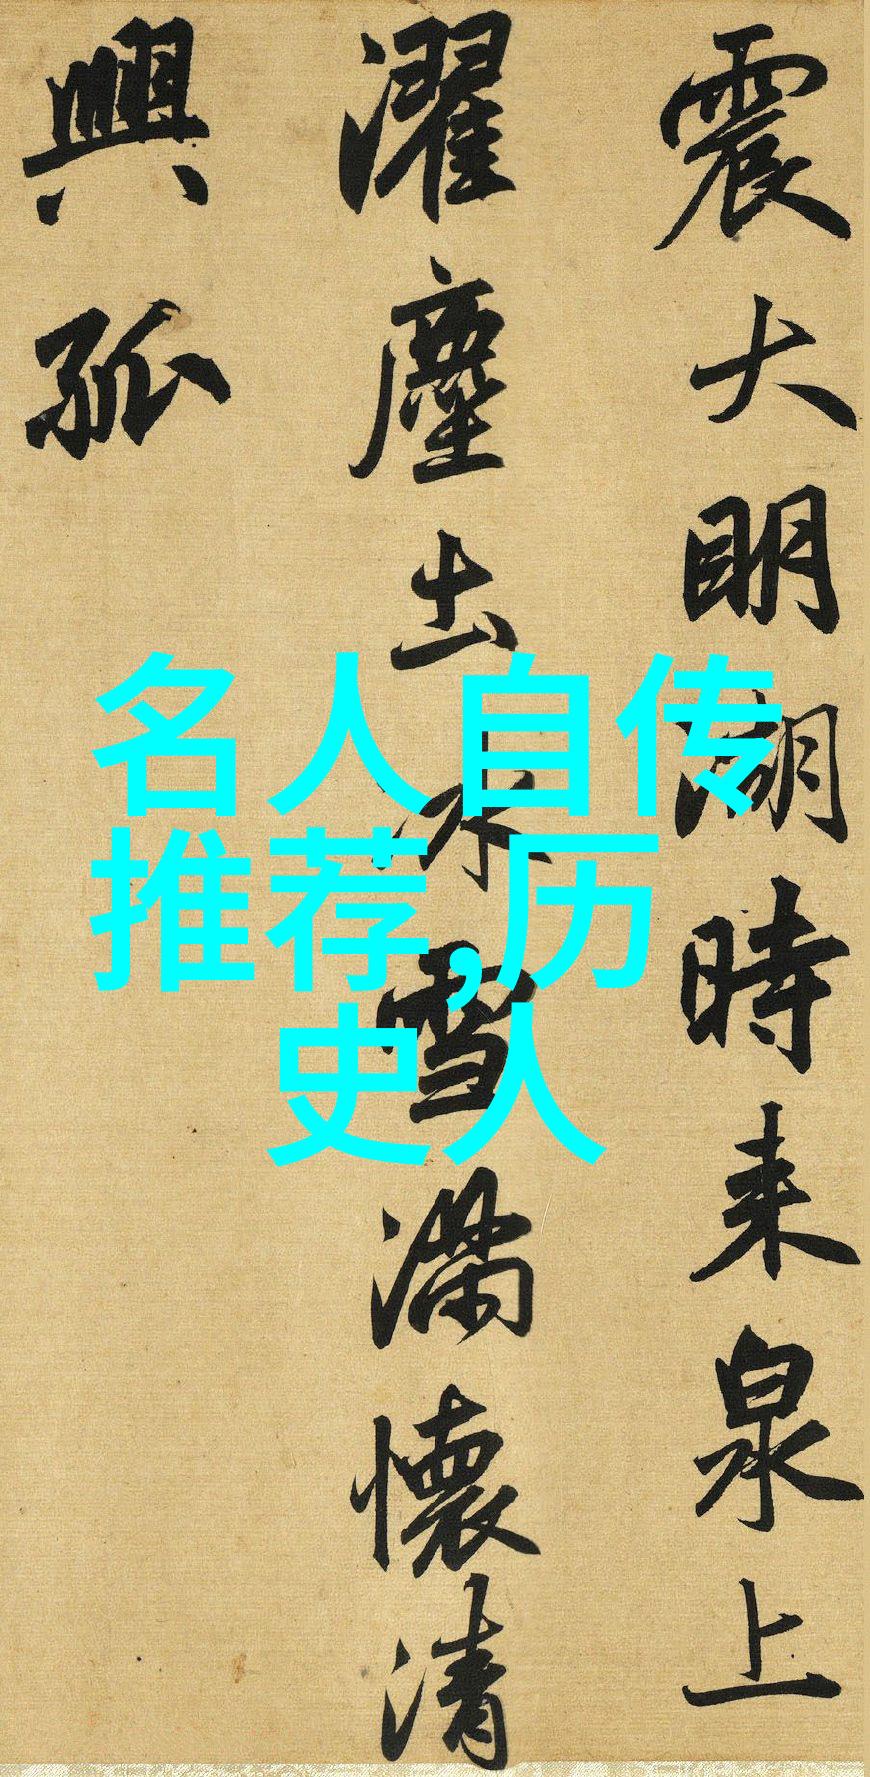 震大明湖時来泉上
濯塵土冰雪滿懷清
興孤
名人自传
推荐,历
史人